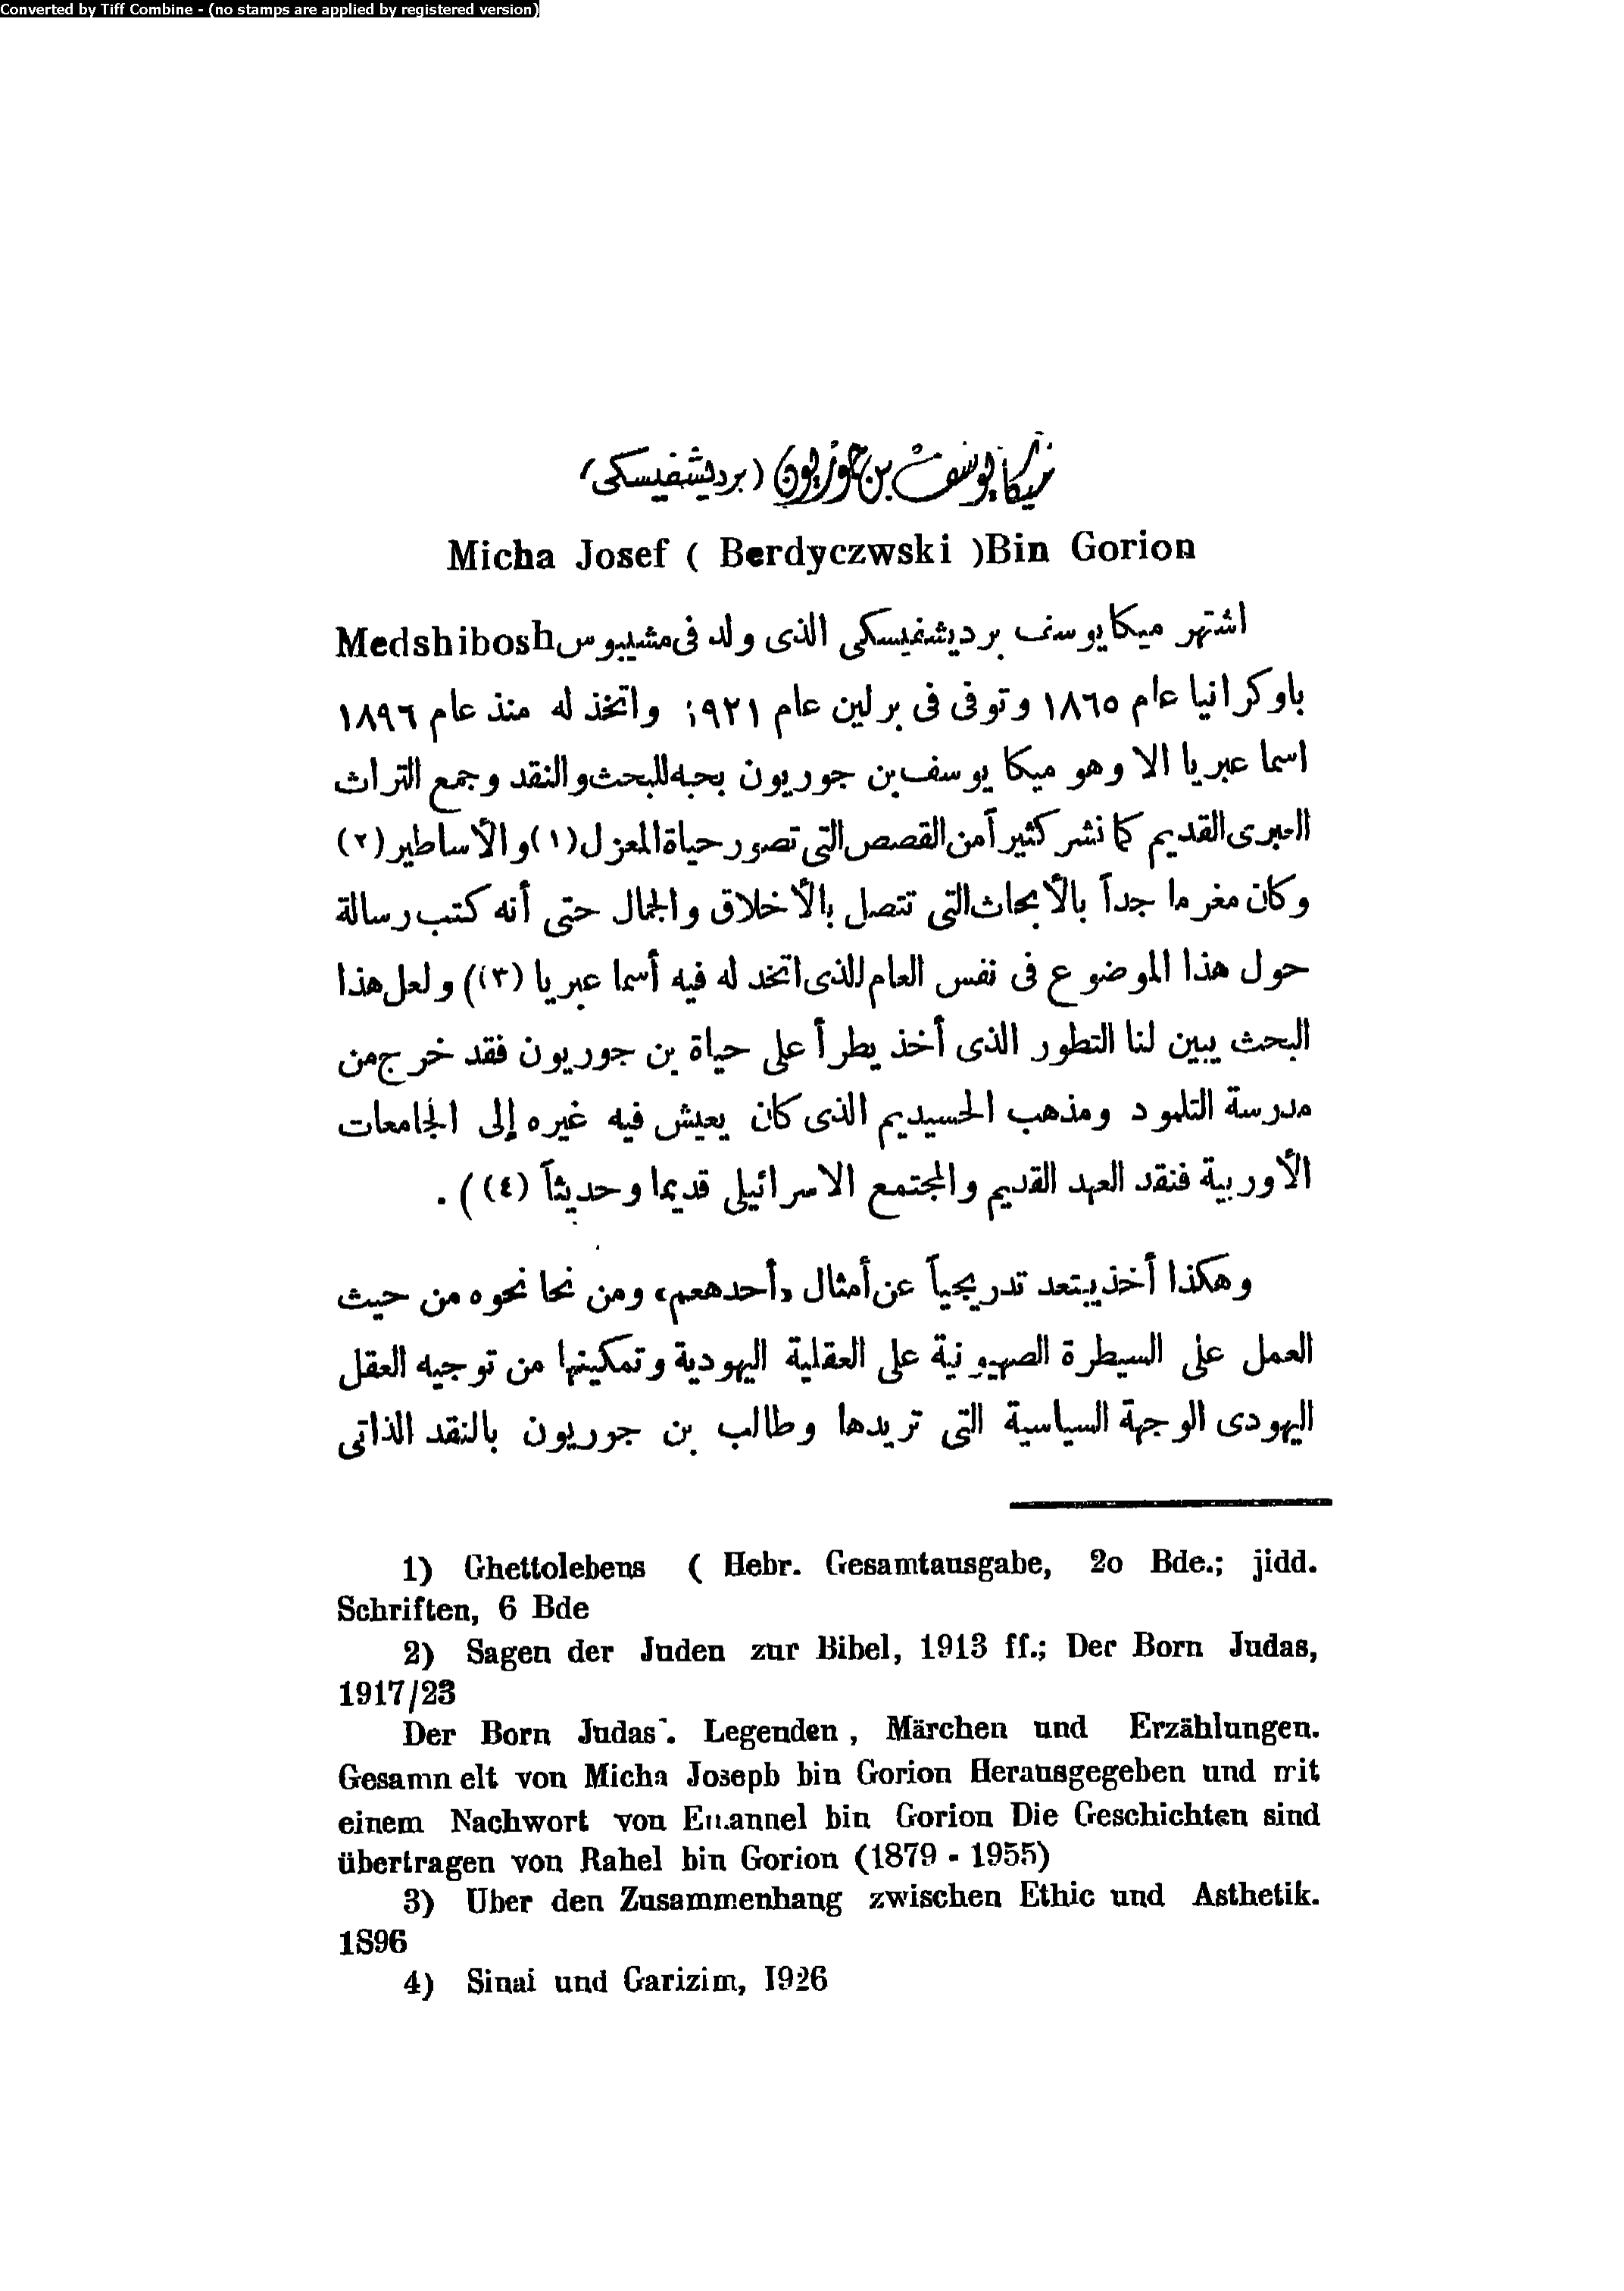 Converted by Tiff Combine - (no stamps are applied by registered version)
ميكا يوسف بن جوريون (برديشفيسكى)
Micha Josef ( Berdyczwski )Bin Gorion
اشتهر ميكا يوسف برديشفيسكى الذى ولد فى مشيبوس Medshibosh
باوكرانيا عام ١٨٦٥ وتوفى فى برلين عام ١٩٢١ واتخذ له منذ عام ١٨٩٦
اسما عبريا الا وهو ميكا يوسف بن جوريون بحبه للبحث والنقد وجمع التراث
العبرى القديم كما نشر كثيراً من القصص التى تصور حياة المعزل (١) والأساطير (٢)
وكان مغرما جداً بالأبحاث التى تتصل بالأخلاق والجمال حتى أنه كتب رسالة
حول هذا الموضوع فى نفس العام الذى اتخد له فيه أسما عبريا (٣)) ولعل هذا
البحث يبين لنا التطور الذى أخذ يطرأ على حياة بن جوريون فقد خرج من
مدرسة التلمود ومذهب الحسيديم الذى كان يعيش فيه غيره إلى الجامعات
الأوربية فنقد العهد القديم والمجتمع الاسرائيلى قديما وحديثاً (٤)) .
وهكذا أخذ يبتعد تدريجياً عن أمثال «أحدهعم» ومن نحا نحوه من حيث
العمل على السيطرة الصهيونية على العقلية اليهودية وتمكينها من توجيه العقل
اليهودى الوجهة السياسية التى تريدها وطالب بن جوريون بالنقد الذاتى
1) Ghettolebens ( Hebr. Gesamtausgabe, 2o Bde.; jidd.
Schriften, 6 Bde
2) Sagen der Juden zur Bibel, 1913 ff.; Der Born Judas,
1917/23
Der Born Judas. Legenden , Märchen und Erzählungen.
Gesammelt von Micha Joseph bin Gorion Herausgegeben und mit
einem Nachwort von Emannel bin Gorion Die Geschichten sind
übertragen von Rahel bin Gorion (1879 - 1955)
3) Uber den Zusammenhang zwischen Ethic und Asthetik.
1896
4) Sinai und Garizim, 1926